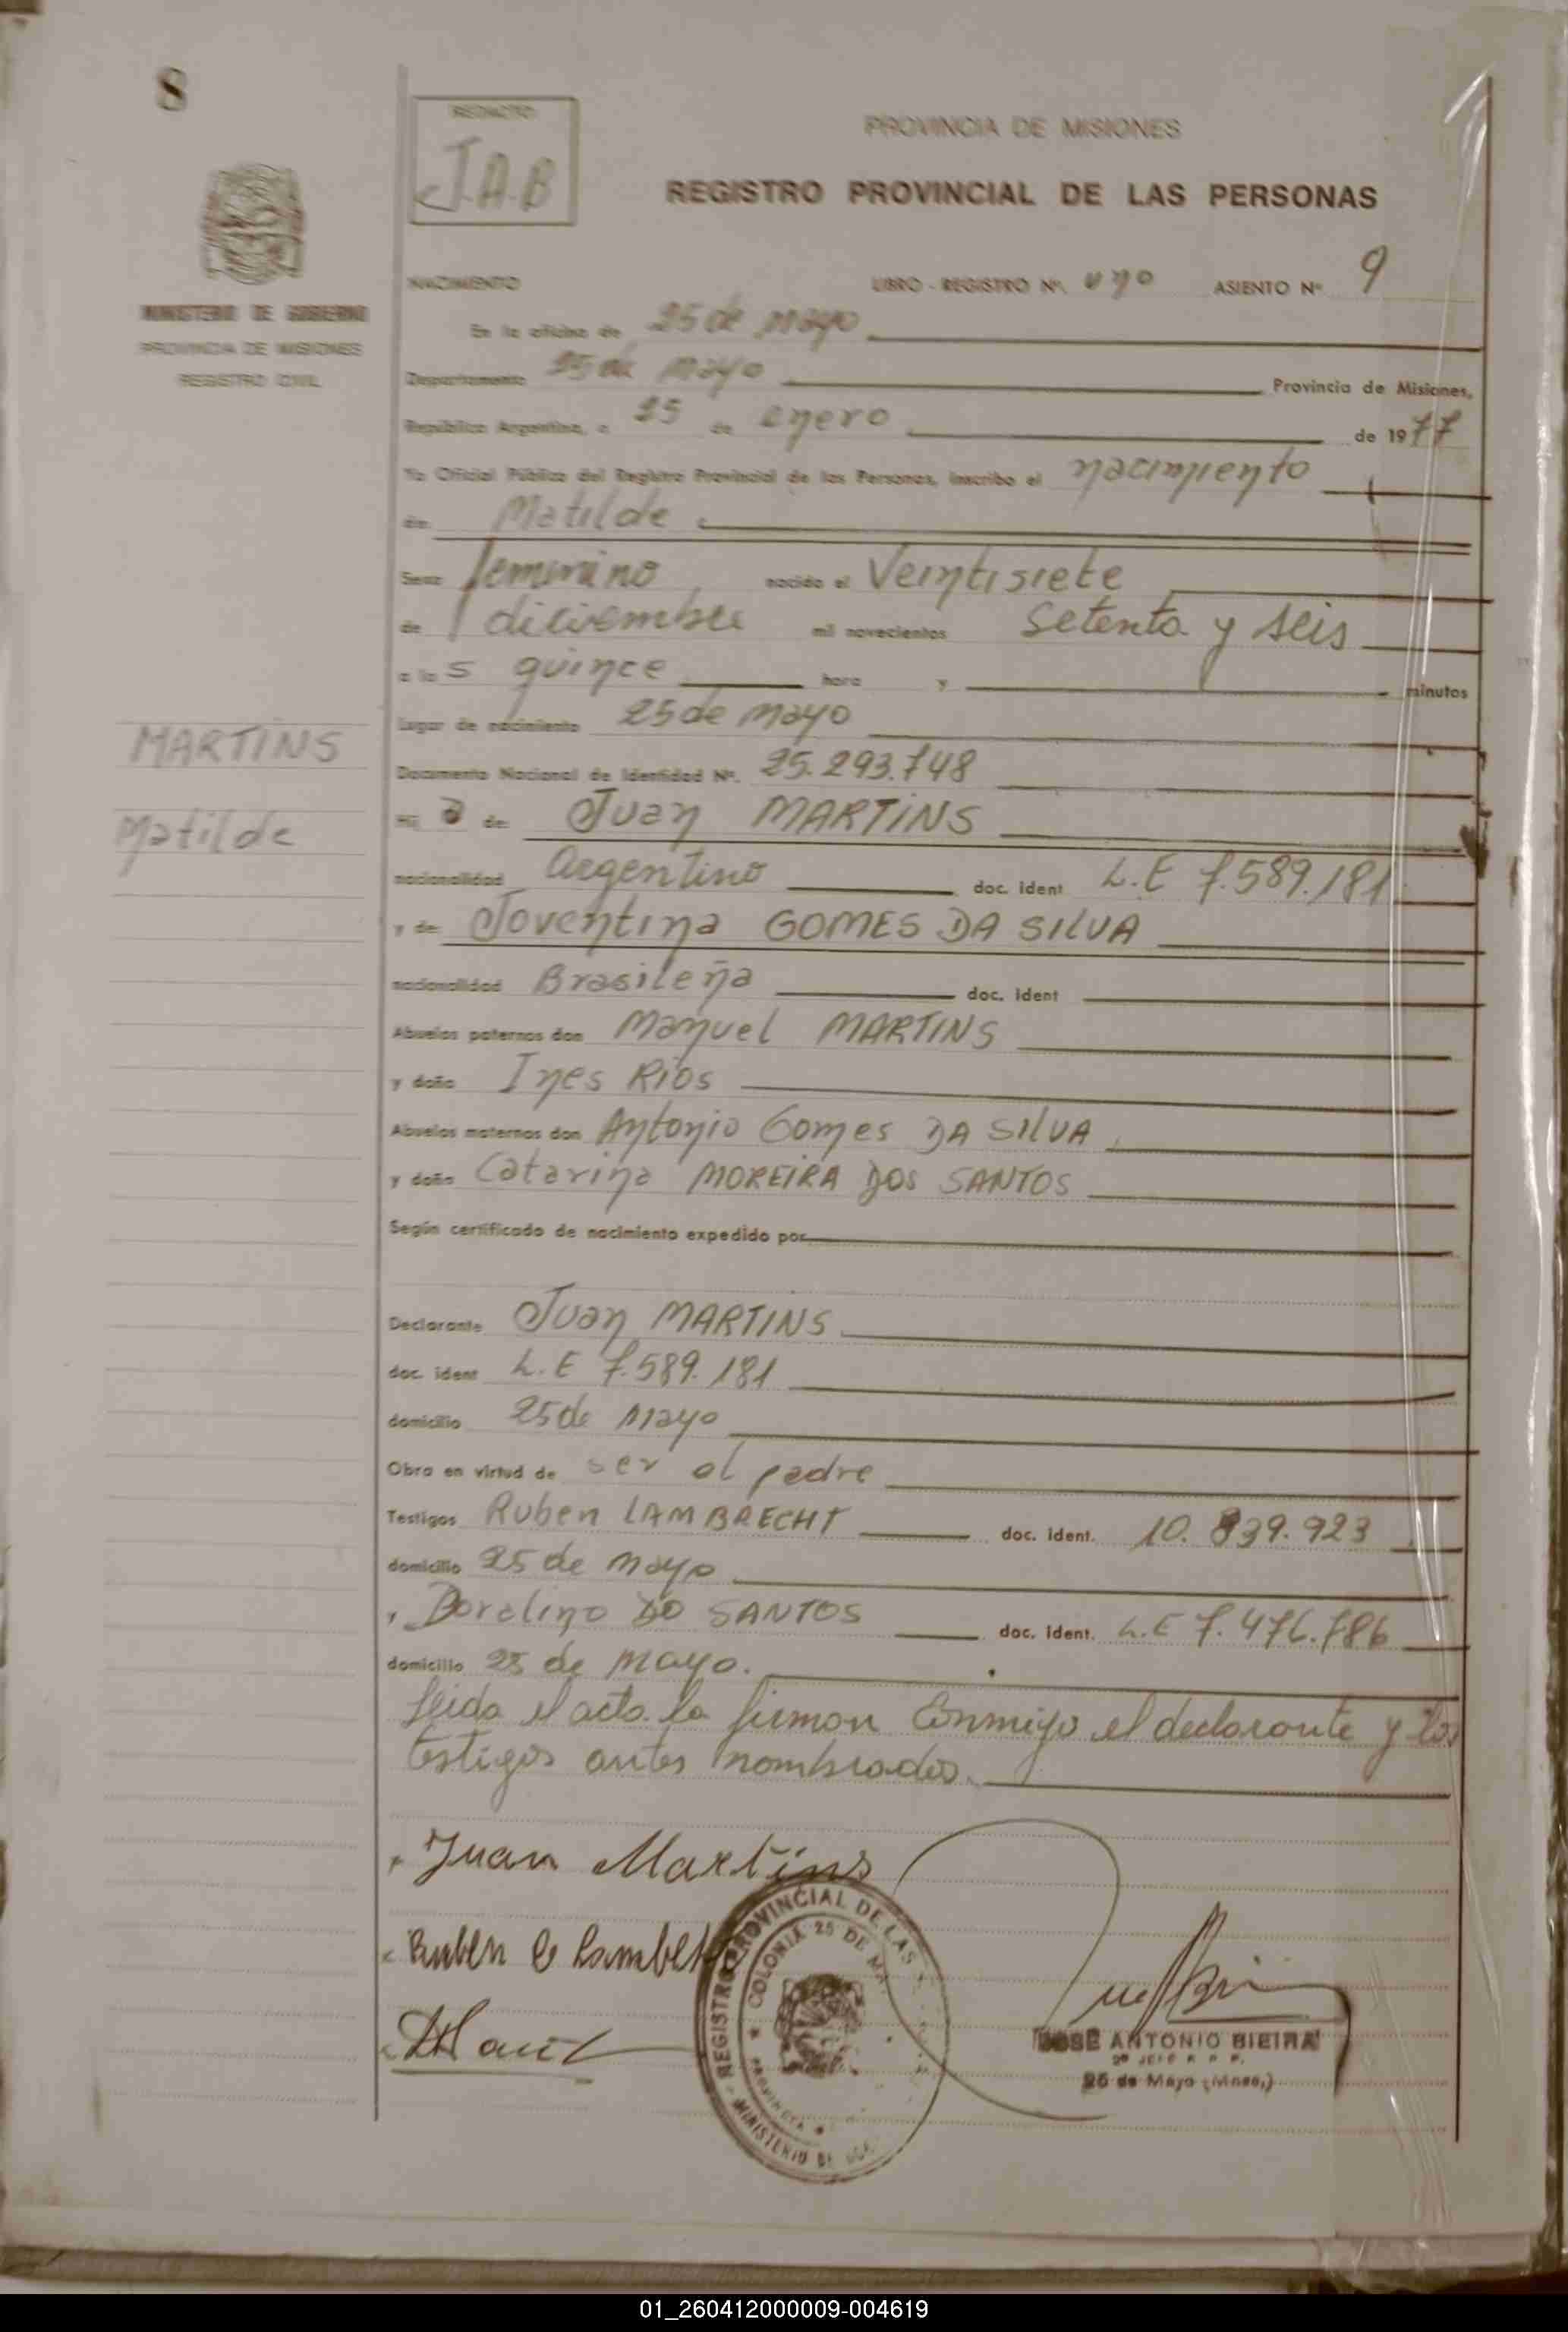 8
REDACTO
J.A.B
PROVINCIA DE MISIONES
REGISTRO PROVINCIAL DE LAS PERSONAS
MINISTERIO DE GOBIERNO
PROVINCIA DE MISIONES
REGISTRO CIVIL
NACIMIENTO LIBRO - REGISTRO Nº. uno ASIENTO Nº 9
En la oficina de 25 de mayo
Departamento 25 de mayo Provincia de Misiones,
República Argentina, a 25 de enero de 1977
Yo Oficial Público del Registro Provincial de las Personas, inscribo el nacimiento
de Matilde
Sexo femenino nacido el Veintisiete
de diciembre mil novecientos setenta y seis
a las quince hora y minutos
Lugar de nacimiento 25 de mayo
MARTINS
Matilde
Documento Nacional de Identidad Nº. 25.293.748
Hij a de Juan MARTINS
nacionalidad Argentino doc. ident L.E 7.589.181
y de Joventina GOMES DA SILVA
nacionalidad Brasileña doc. ident
Abuelos paternos don Manuel MARTINS
y doña Ines RIOS
Abuelos maternos don Antonio Gomes DA SILVA
y doña Catarina MOREIRA DOS SANTOS
Según certificado de nacimiento expedido por
Declarante Juan MARTINS
doc. ident L.E 7.589.181
domicilio 25 de mayo
Obra en virtud de ser el padre
Testigos Ruben LAMBRECHT doc. ident. 10.839.923
domicilio 25 de mayo
y Doralino DO SANTOS doc. ident. L.E 7.476.786
domicilio 25 de mayo.
Leida el acta la firman conmigo el declarante y los
testigos antes nombrados.
Juan Martins
Ruben
REGISTRO PROVINCIAL DE LAS
COLONIA 25 DE MA
PROVINCIA
MINISTERIO DE
JOSE ANTONIO BIEIRA
25 de Mayo (Mnes.)
01_260412000009-004619